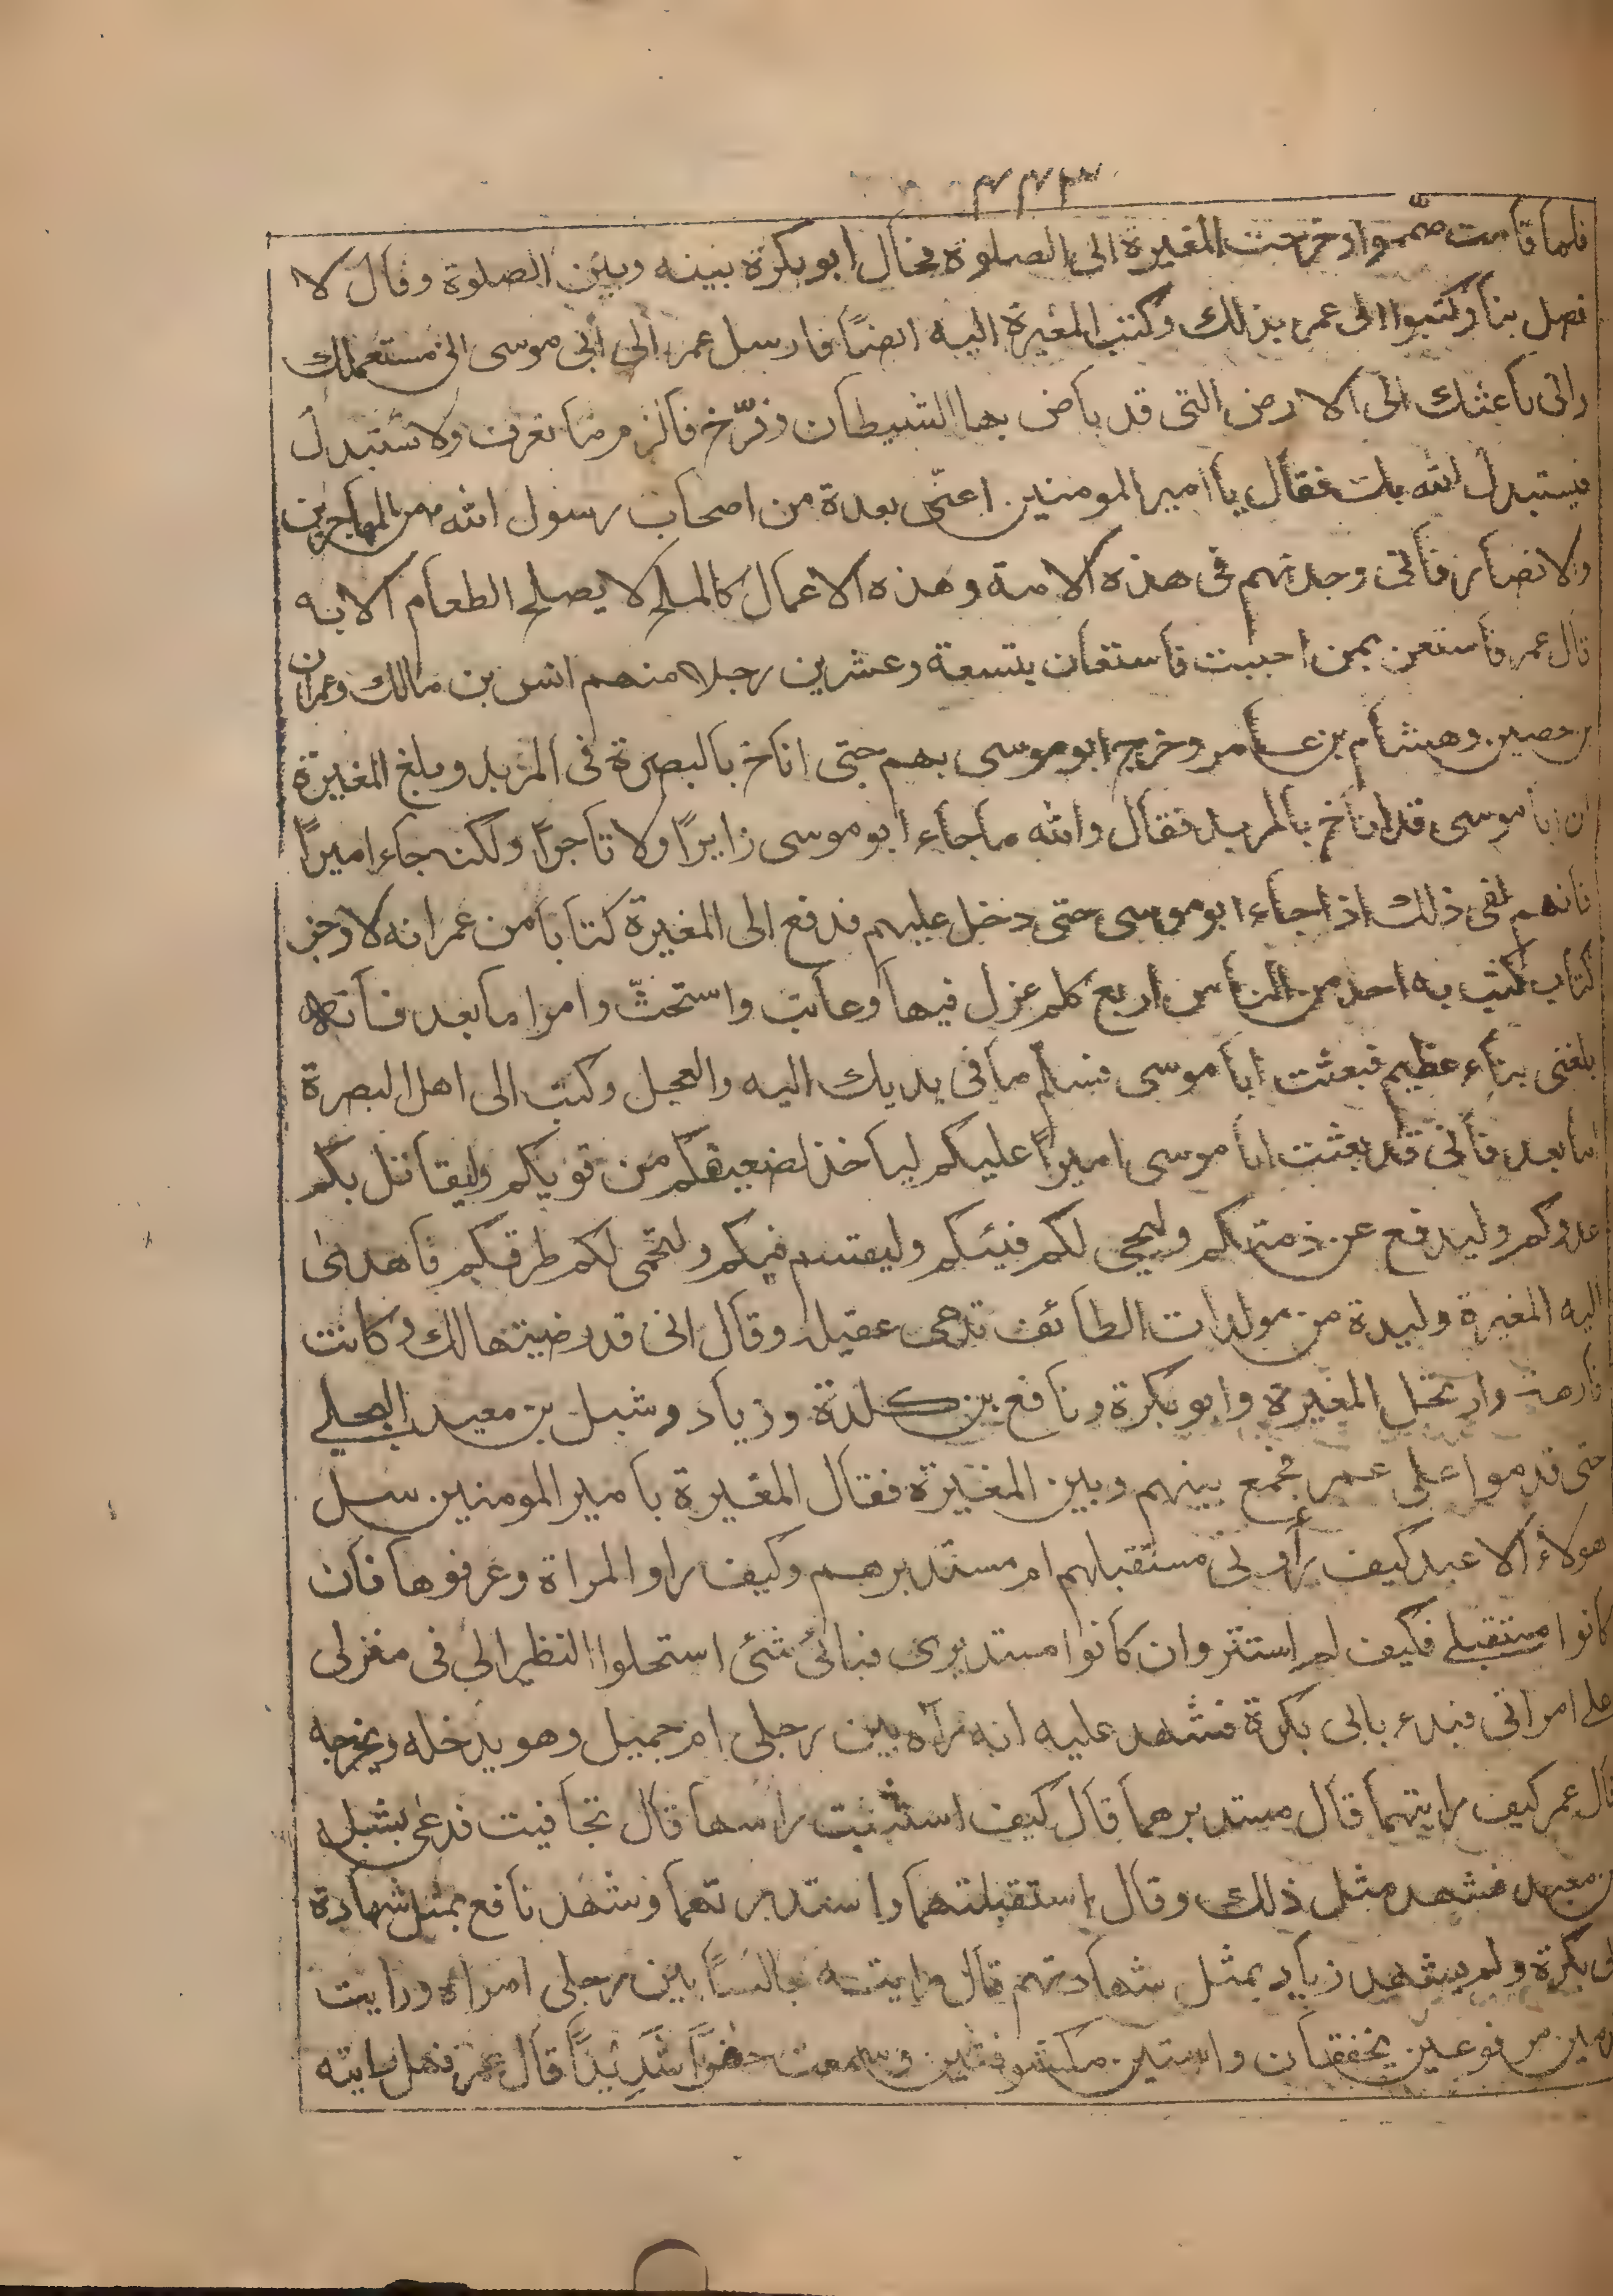 ٣٤٣
فلما قامت صمموا وخرجت المغيرة الى الصلوة فحال ابو بكرة بينه وبين الصلوة وقال لا
تصل بنا وكتبوا الى عمر بذلك وكتب المغيرة اليه ايضاً فارسل عمر الى ابى موسى انى مستعملك
وانى باعثك الى الارض التى قد باض بها الشيطان وفرّخ فالزم ما تعرف ولا تستبدل
فيستبدل الله بك فقال يا امير المومنين اعنّى بعدة من اصحاب رسول الله من المهاجرين
والانصار فانى وجدتهم فى هذه الامة وهذه الاعمال كالملح لا يصلح الطعام الا به
قال عمر فاستعن بمن احببت فاستعان بتسعة وعشرين رجلا منهم انس بن مالك وعمران
بن حصين وهشام بن عامر وخرج ابو موسى بهم حتى اناخ بالبصرة فى المربد وبلغ المغيرة
ان ابا موسى قد اناخ بالمربد فقال والله ما جاء ابو موسى زايراً ولا تاجراً ولكنه جاء اميراً
فانهم لفى ذلك اذ جاء ابو موسى حتى دخل عليهم فدفع الى المغيرة كتابا من عمر انه لاوجز
كتاب كتب به احد من الناس اربع كلم عزل فيها وعاتب واستحثّ وامر اما بعد فانه
بلغنى نباء عظيم فبعثت ابا موسى فسلم ما فى يديك اليه والعجل وكتب الى اهل البصرة
اما بعد فانى قد بعثت ابا موسى اميراً عليكم لياخذ لضعيفكم من قويكم وليقاتل بكم
عدوكم وليدفع عن ذمتكم وليحيى لكم فيئكم وليقسم فيكم ولتحمى لكم طرقكم فاهدى
اليه المغيرة وليدة من مولدات الطائف تدعى عقيله وقال انى قد رضيتها لك وكانت
فارهة وارتحل المغيرة وابو بكرة ونافع بن كلدة وزياد وشبل بن معبد البجلے
حتى قدموا على عمر فجمع بينهم وبين المغيرة فقال المغيرة يا امير المومنين سل
هولاء الا عبد كيف رأونى مستقبلهم ام مستدبرهم وكيف راو المراة وعرفوها فان
كانوا مستقبلے فكيف لم استتر وان كانوا مستدبرى فبائ شئى استحلوا النظر الى فى منزلى
على امراتى فبدء بابى بكرة فشهد عليه انه رآه بين رجلى ام جميل وهو يدخله ويخرجه
قال عمر كيف رايتهما قال مستدبرهما قال كيف استثبت راسها قال تجافيت فدعى بشبل
بن معبد فشهد مثل ذلك وقال استقبلتهما واستدبرتهما وشهد نافع بمثل شهادة
ابى بكرة ولم يشهد زياد بمثل شهادتهم قال رايته جالساً بين رجلى امراه ورايت
قدمين مرفوعين يخفقان واستين مكشوفتين وسمعت حفزاً شديداً قال عمر فهل رايته